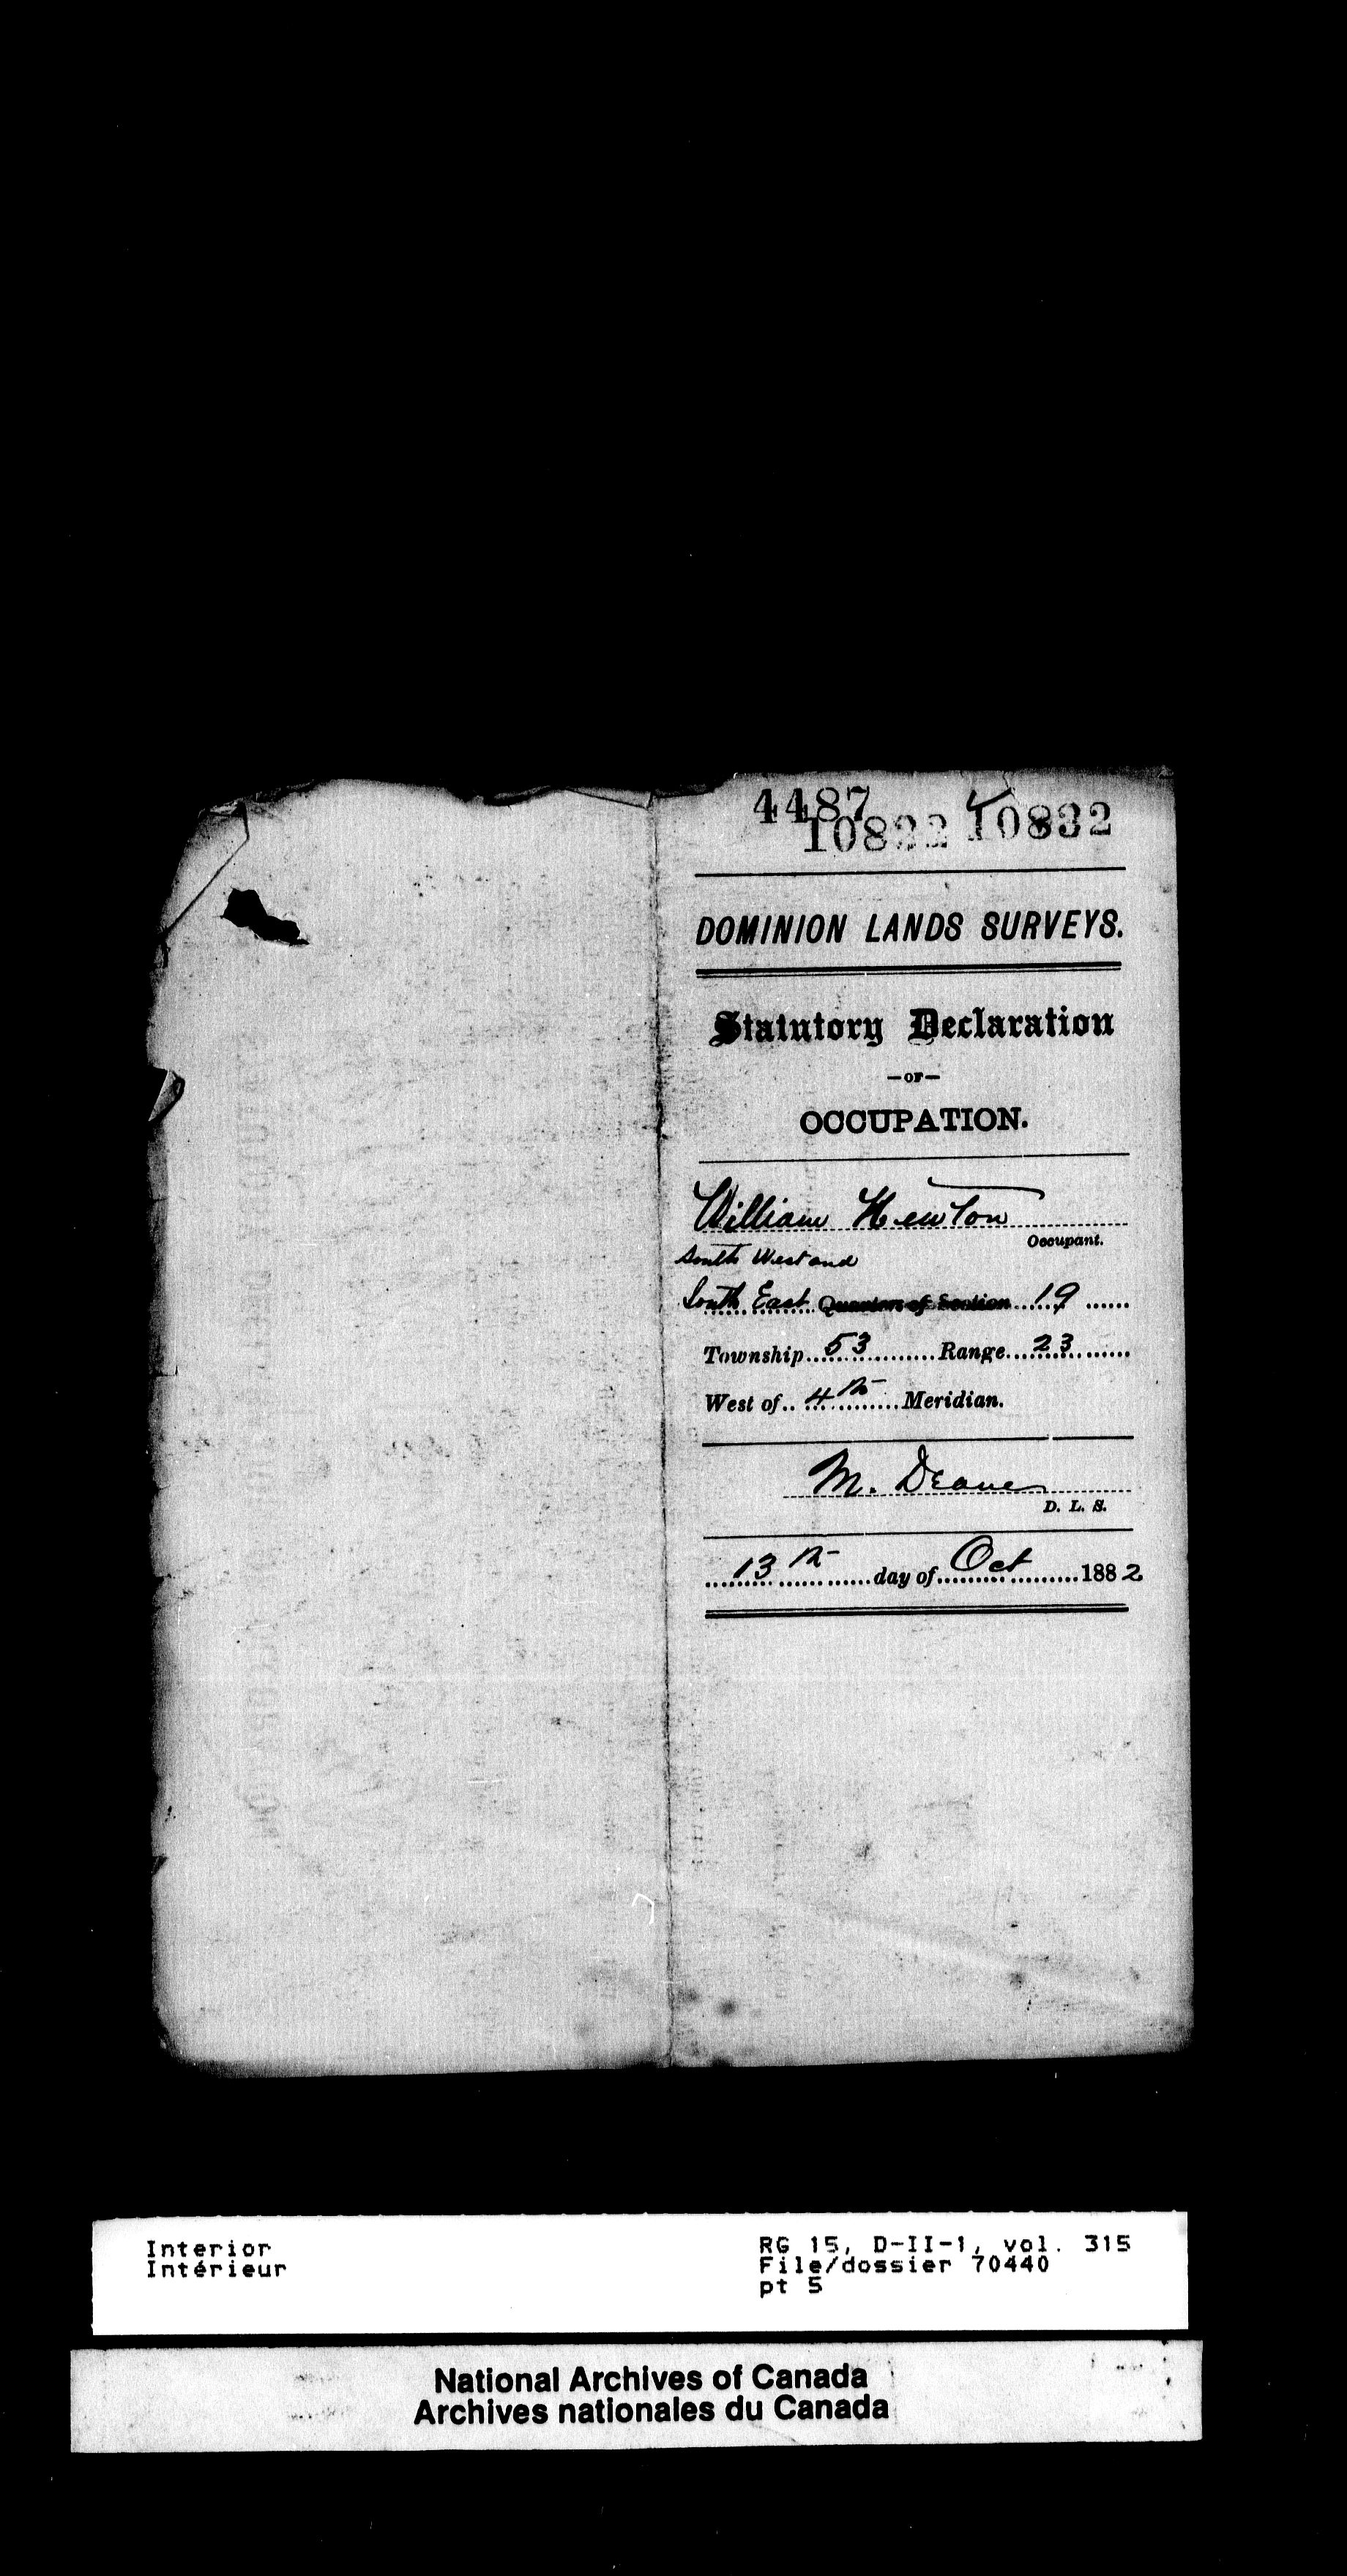 4487
10822 10832
DOMINION LANDS SURVEYS.
Statutory Declaration
—OF—
OCCUPATION.
William Newton
Occupant.
South West and
South East Quarters of Section 19
Township 53 Range 23
West of 4th Meridian.
M. Deane
D. L. S.
13th day of Oct 1882
Interior
Intérieur
RG 15, D-II-1, vol. 315
File/dossier 70440
pt 5
National Archives of Canada
Archives nationales du Canada